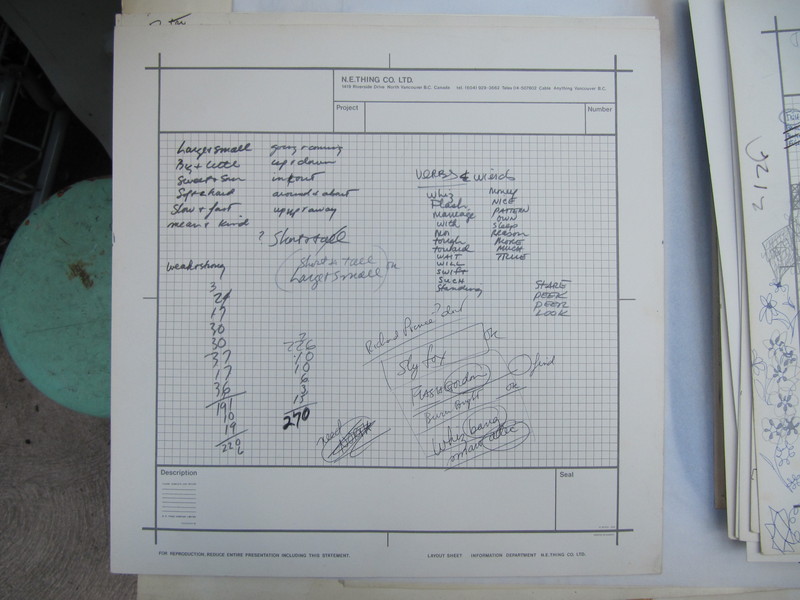 N.E.THING CO. LTD.
1419 Riverside Drive North Vancouver B.C. Canada tel. (604) 929-3552 Telex 04-507802 Cable Anything Vancouver B.C.
Project
Number
Large + small going + coming
Big + little up + down
Sweet + Sour in + out
Soft + hard around + about
Slow + fast up up + away
mean + kind
? Short + tall
weak + strong
Short + tall
Large + small OK
VERBS & WORDS
Whiz
Flash
Marriage
With
NO
Tough
toward
WAIT
WILL
SWIFT
SUCH
Standing
Money
NICE
PATTERN
OWN
Sleep
Reason
MORE
MUCH
TRUE
STARE
PEEK
PEER
LOOK
3
24
17
30
30
37
17
36
191
10
19
220
226
10
10
6
3
15
270
Richard Prince ? don't
Sly fox OK
Flash Gordon find
Burn Bright OK
Whiz bang
smart
need
Description
Seal
FOR REPRODUCTION, REDUCE ENTIRE PRESENTATION INCLUDING THIS STATEMENT.
LAYOUT SHEET INFORMATION DEPARTMENT N.E.THING CO. LTD.